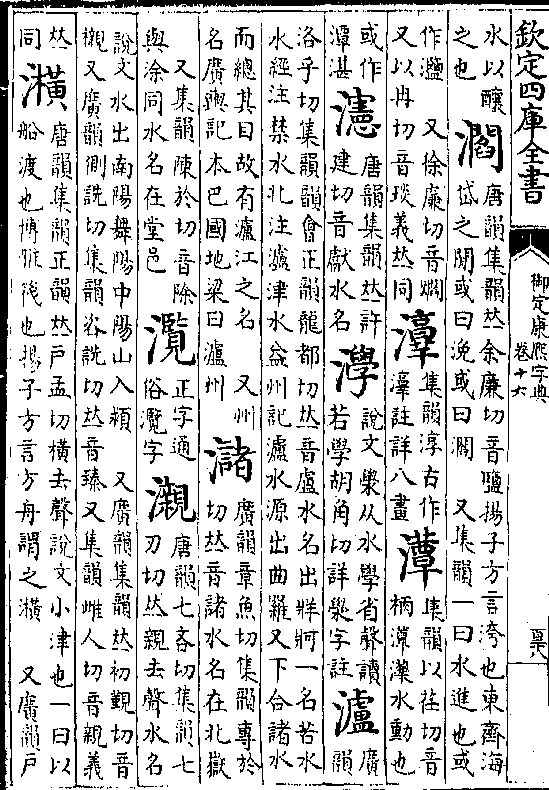 欽定四庫全書
御定康熙字典
卷十六
水以釀
之也
灍
唐韻集韻𠀤余廉切音鹽揚子方言洿也東齊海
岱之閒或曰浼或曰㵝 又集韻一曰水進也或
作灩 又徐廉切音燗
又以冉切音琰義𠀤同
集韻淳古作
註詳八畫
集韻以荏切音
水動也
或作
潭湛
瀗
唐韻集韻𠀤許
建切音獻水名
澩
說文泶从水學省聲讀
若學胡角切詳泶字註
瀘
廣韻
洛乎切集韻韻會正韻龍都切𠀤音盧水名出牂牁一名若水
水經注禁水北注瀘津水益州記瀘水源出曲羅又下合諸水
而總其目故有瀘江之名 又州
名廣輿記本巴國地梁曰瀘州
瀦
廣韻章魚切集韻專於
切𠀤音諸水名在北嶽
又集韻陳於切音除
與涂同水名在堂邑
灠
正字通
俗灠字
瀙
唐韻七吝切集韻七
刃切𠀤親去聲水名
說文水出南陽舞陽中陽山入潁 又廣韻集韻𠀤初覲切音
櫬又廣韻側詵切集韻緇詵切𠀤音臻又集韻雌人切音親義
𠀤
同
瀇
唐韻集韻正韻𠀤戸孟切橫去聲說文小津也一曰以
船渡也博雅筏也揚子方言方舟謂之瀇 又廣韻戸